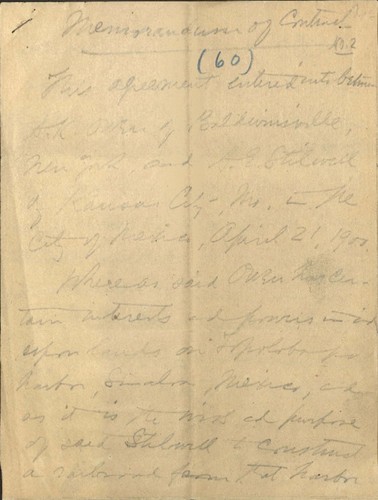 Memorandum of Contract
No. 2
(60)
This agreement entered into between
A.K. Owen of Baldwinsville,
New York, and A. E. Stilwell
of Kansas City, Mo. in the
City of Mexico, April 21, 1900.
Whereas said Owen has cer-
tain interests and powers in and
upon lands on Topolobampo
harbor, Sinaloa, Mexico, and
as it is the wish and purpose
of said Stilwell to construct
a railroad from that harbor